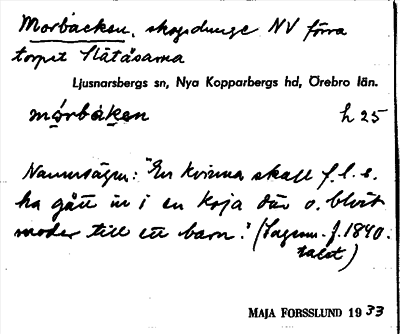 Morbacken, skogsdunge NV förra
torpet Slätåsarna
Ljusnarsbergs sn, Nya Kopparbergs hd, Örebro län.
mórbàken h 25
Namnsägn: "En kvinna skall f.l.s.
ha gått in i en koja där o. blivit
moder till ett barn." (Sagesm. f. 1840.
talet)
MAJA FORSSLUND 1933